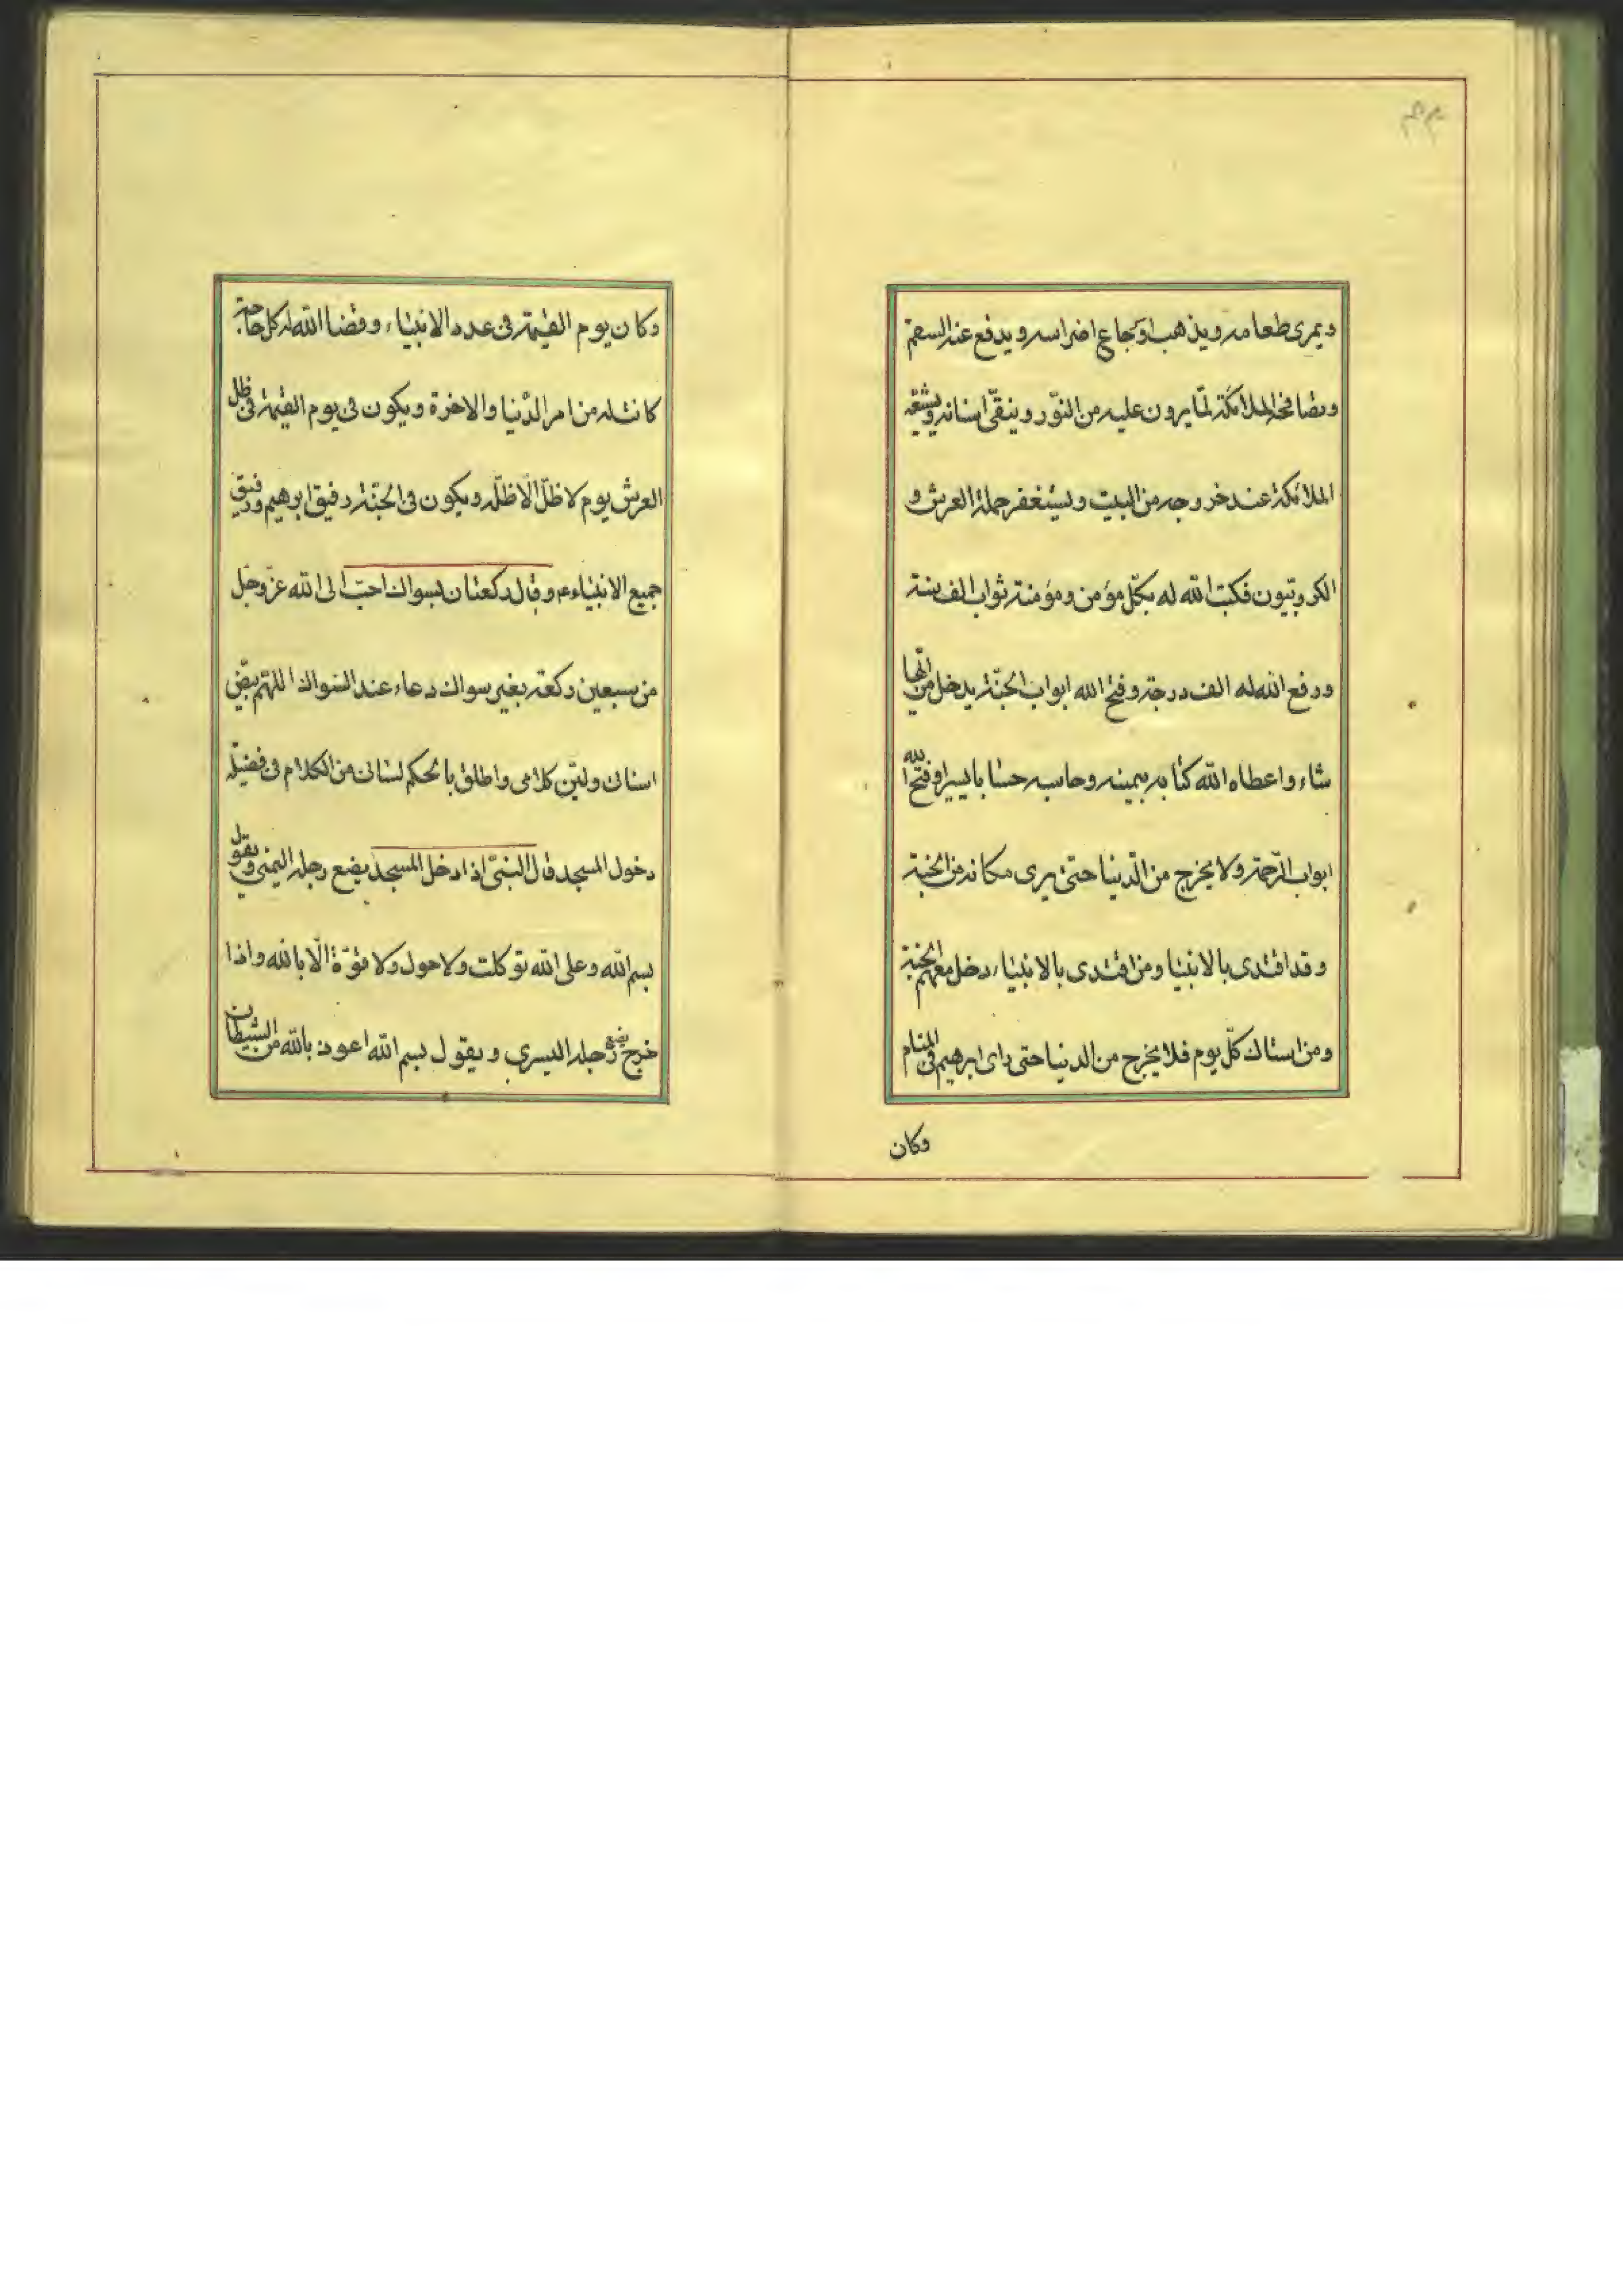 ويمرى طعامه ويذهب اوجاع اضراسه ويدفع عنه السقم
وبصافحه الملائكة لما يرون عليه من النوّر وينقّى اسنانه ويشيّعه
الملائكة عند خروجه من البيت ويستغفر حملة العرش و
الكروبيّون فكتب الله له بكلّ مؤمن ومؤمنة ثواب الف سنة
ورفع الله له الف درجة وفتح الله ابواب الجنّة يدخل من ايّها
شاء واعطاه الله كتابه بيمينه وحاسبه حسابا يسيرا وفتح الله
ابواب الرّحمة ولا يخرج من الدّنيا حتىّ يرى مكانه من الجنة
وقد اقتدى بالانبيا ومن اقتدى بالانبياء دخل معهم الجنة
ومن استاك كلّ يوم فلا يخرج من الدنيا حتى راى ابرهيم فى المنام
وكان
وكان يوم القيمة فى عدد الانبياء وقضا الله له كل حاجة
كانت له من امر الدّنيا والاخرة ويكون فى يوم القيمة فى ظل
العرش يوم لا ظلّ الّا ظلّه ويكون فى الجنّة رفيق ابرهيم ورفيق
جميع الانبياء عم وقال ركعتان بسواك احبّ الى الله عزّ وجل
من سبعين ركعة بغير سواك دعاء عند السواك اللهم بيّض
اسنانى وليّن كلامى واطلق بالحكم لسانى من الكلام فى فضيلة
دخول المسجد قال النبىّ اذا دخل المسجد يضع رجله اليمنى ويقول
بسم الله وعلى الله توكلت ولا حول ولا قوّة الّا بالله واذا
خرج يضع رجله اليسرى ويقول بسم الله اعوذ بالله من الشيطان